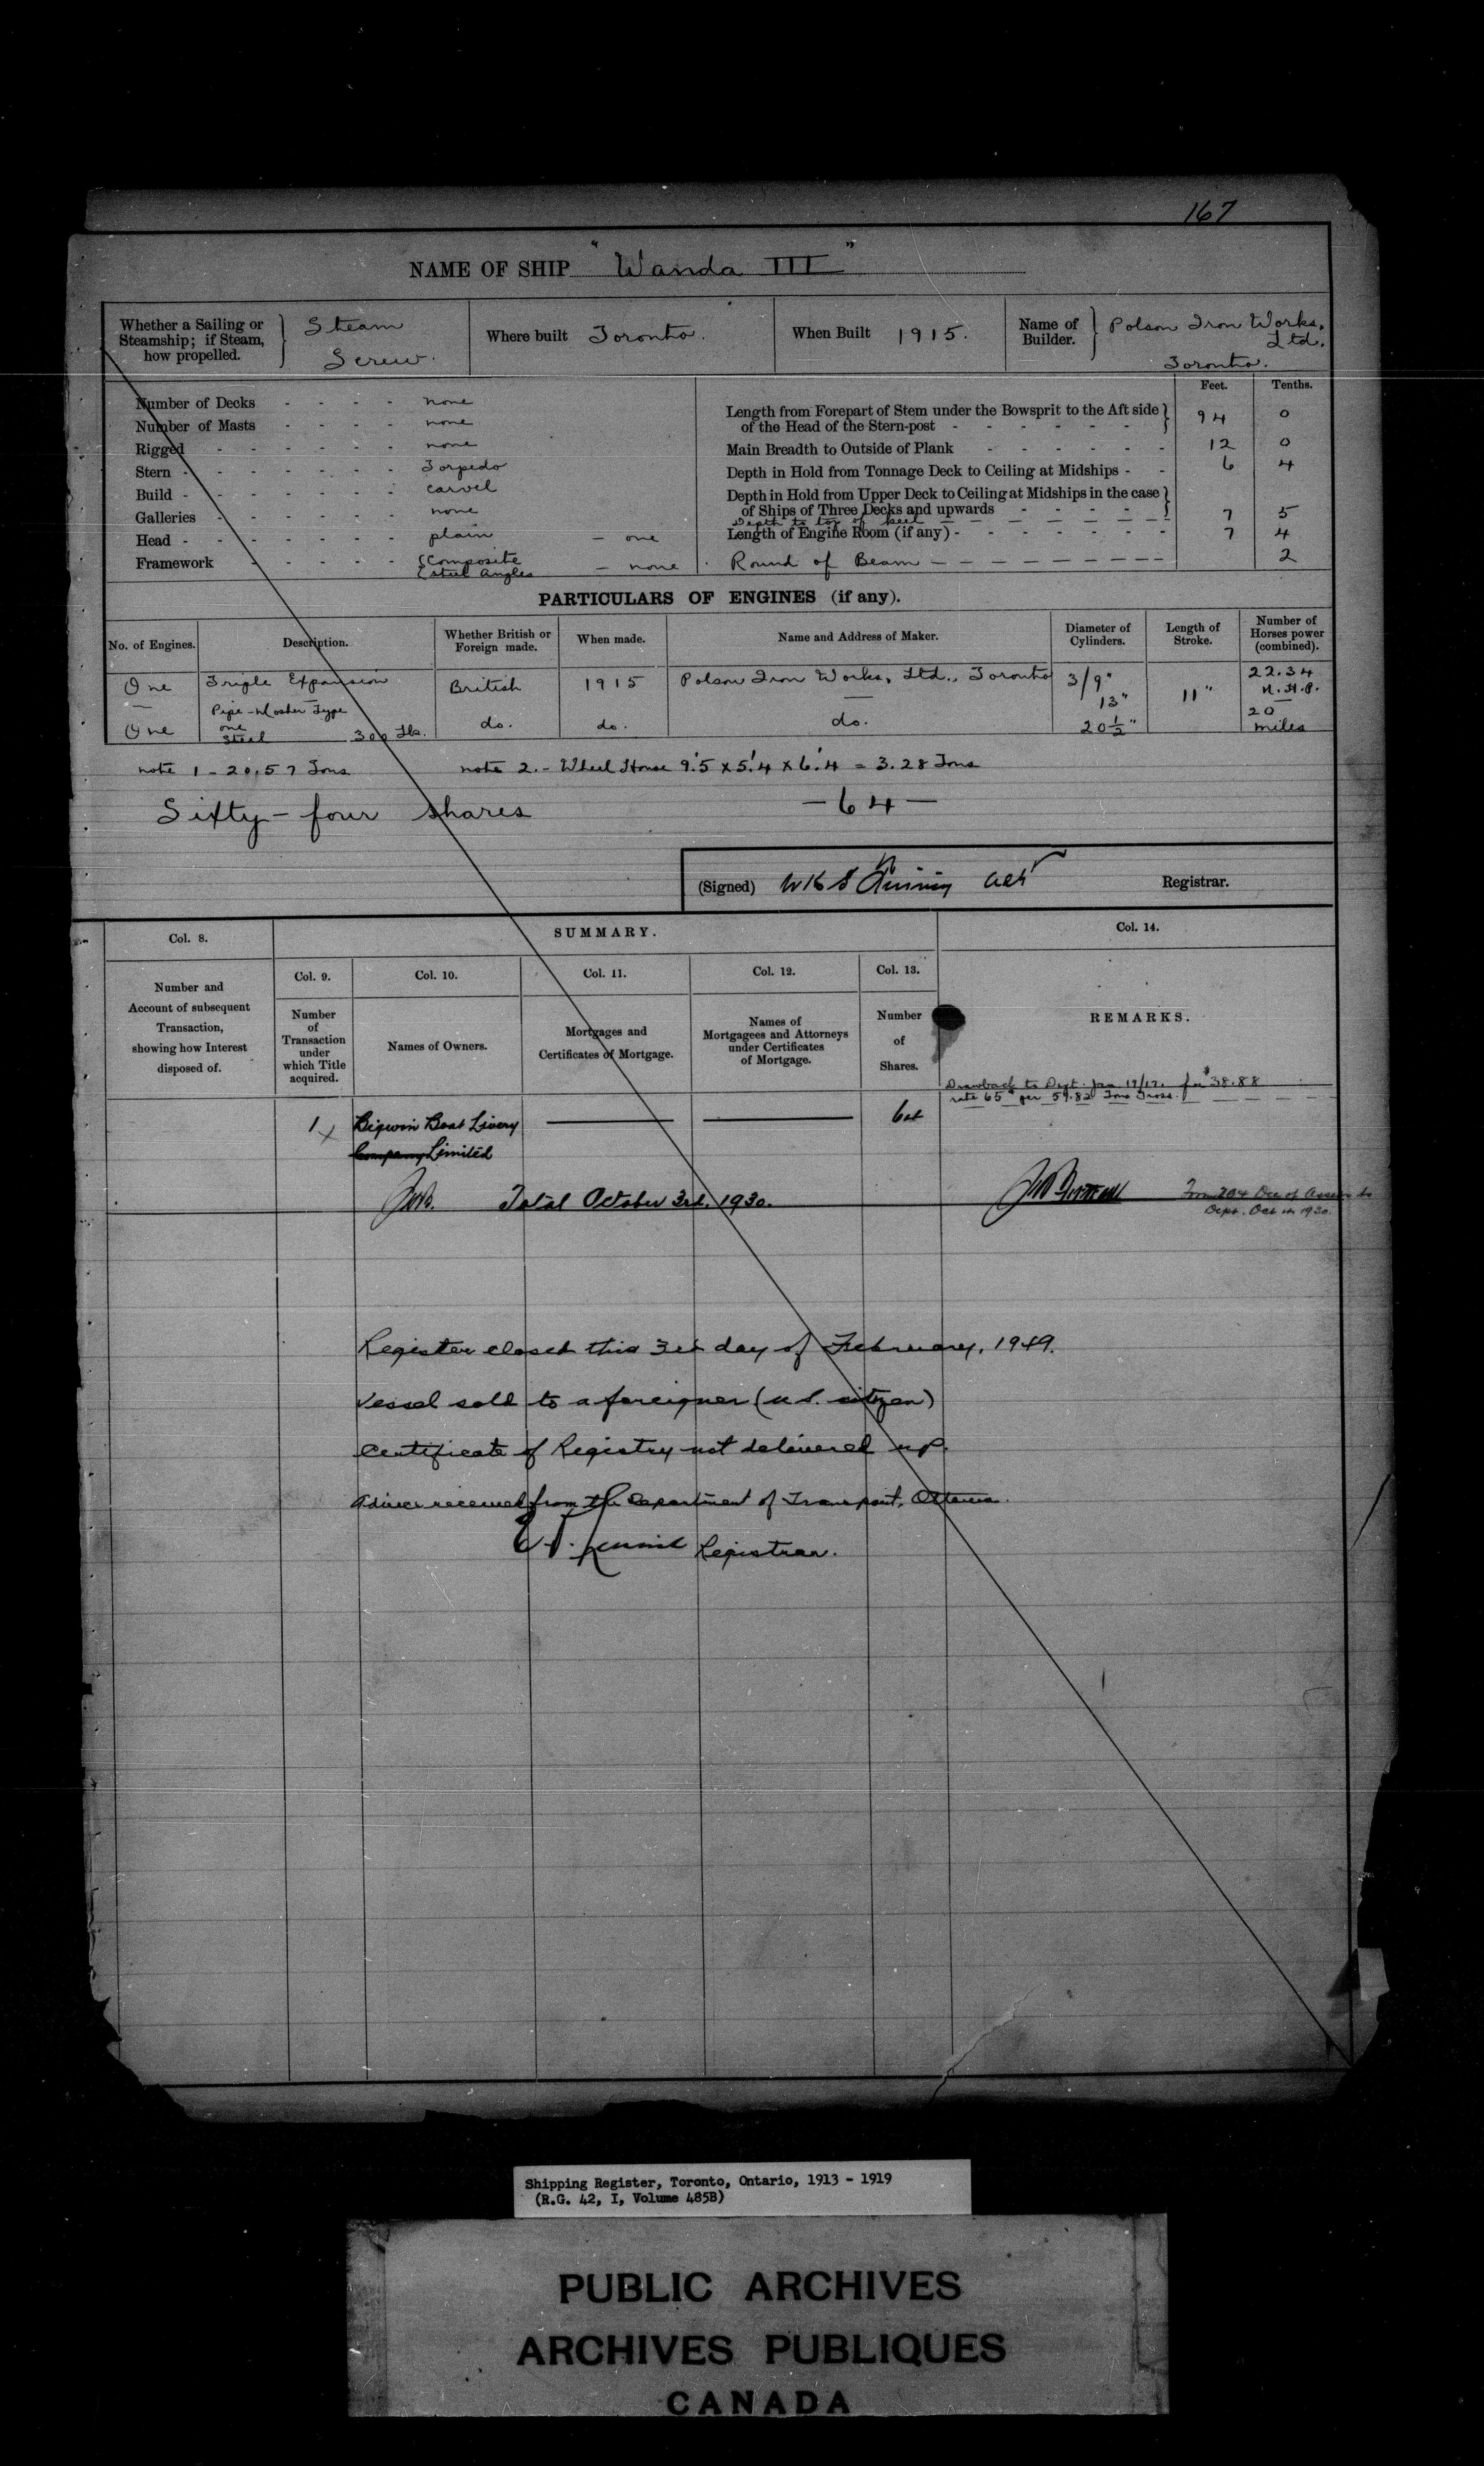 167
NAME OF SHIP "Wanda III"
Whether a Sailing or Steamship; if Steam, how propelled. Steam Screw.
Where built Toronto.
When Built 1915.
Name of Builder. Polson Iron Works, Ltd. Toronto.
Feet. Tenths.
Number of Decks - - - - none
Number of Masts - - - - none
Rigged - - - - none
Stern - - - - Torpedo
Build - - - - carvel
Galleries - - - - none
Head - - - - plain - one
Framework - - - - Composite Steel Angles - none
Length from Forepart of Stem under the Bowsprit to the Aft side of the Head of the Stern-post - 94 0
Main Breadth to Outside of Plank - 12 0
Depth in Hold from Tonnage Deck to Ceiling at Midships - - 6 4
Depth in Hold from Upper Deck to Ceiling at Midships in the case of Ships of Three Decks and upwards
Depth to top of keel 7 5
Length of Engine Room (if any) - 7 4
Round of Beam - 2
PARTICULARS OF ENGINES (if any).
No. of Engines. Description. Whether British or Foreign made. When made. Name and Address of Maker. Diameter of Cylinders. Length of Stroke. Number of Horses power (combined).
One Triple Expansion British 1915 Polson Iron Works, Ltd., Toronto 3/9" 13" 20 1/2" 11" 22.34 N.H.P.
One Pipe-Mosher Type one Steel 300 lbs. do. do. do. 20 miles
note 1 - 20.57 Tons note 2. - Wheel House 9'.5 x 5'.4 x 6'.4 = 3.28 Tons
Sixty-four shares - 64 -
(Signed) Registrar.
Col. 8. SUMMARY. Col. 14.
Col. 9. Col. 10. Col. 11. Col. 12. Col. 13.
Number and Account of subsequent Transaction, showing how Interest disposed of.
Number of Transaction under which Title acquired.
Names of Owners.
Mortgages and Certificates of Mortgage.
Names of Mortgagees and Attorneys under Certificates of Mortgage.
Number of Shares.
REMARKS.
Drawback to Dept. Jan 19/17. for $38.88
rate 65¢ per 59.82 Tons Gross.
1 x Bigwin Boat Livery 64
Company Limited
Total October 3rd. 1930.
Dept. Oct 1930.
Register closed this 3rd day of February, 1949.
Vessel sold to a foreigner (U.S. citizen)
Certificate of Registry not delivered up.
Advice received from the Department of Transport, Ottawa.
Registrar.
Shipping Register, Toronto, Ontario, 1913 - 1919
(R.G. 42, I, Volume 485B)
PUBLIC ARCHIVES
ARCHIVES PUBLIQUES
CANADA